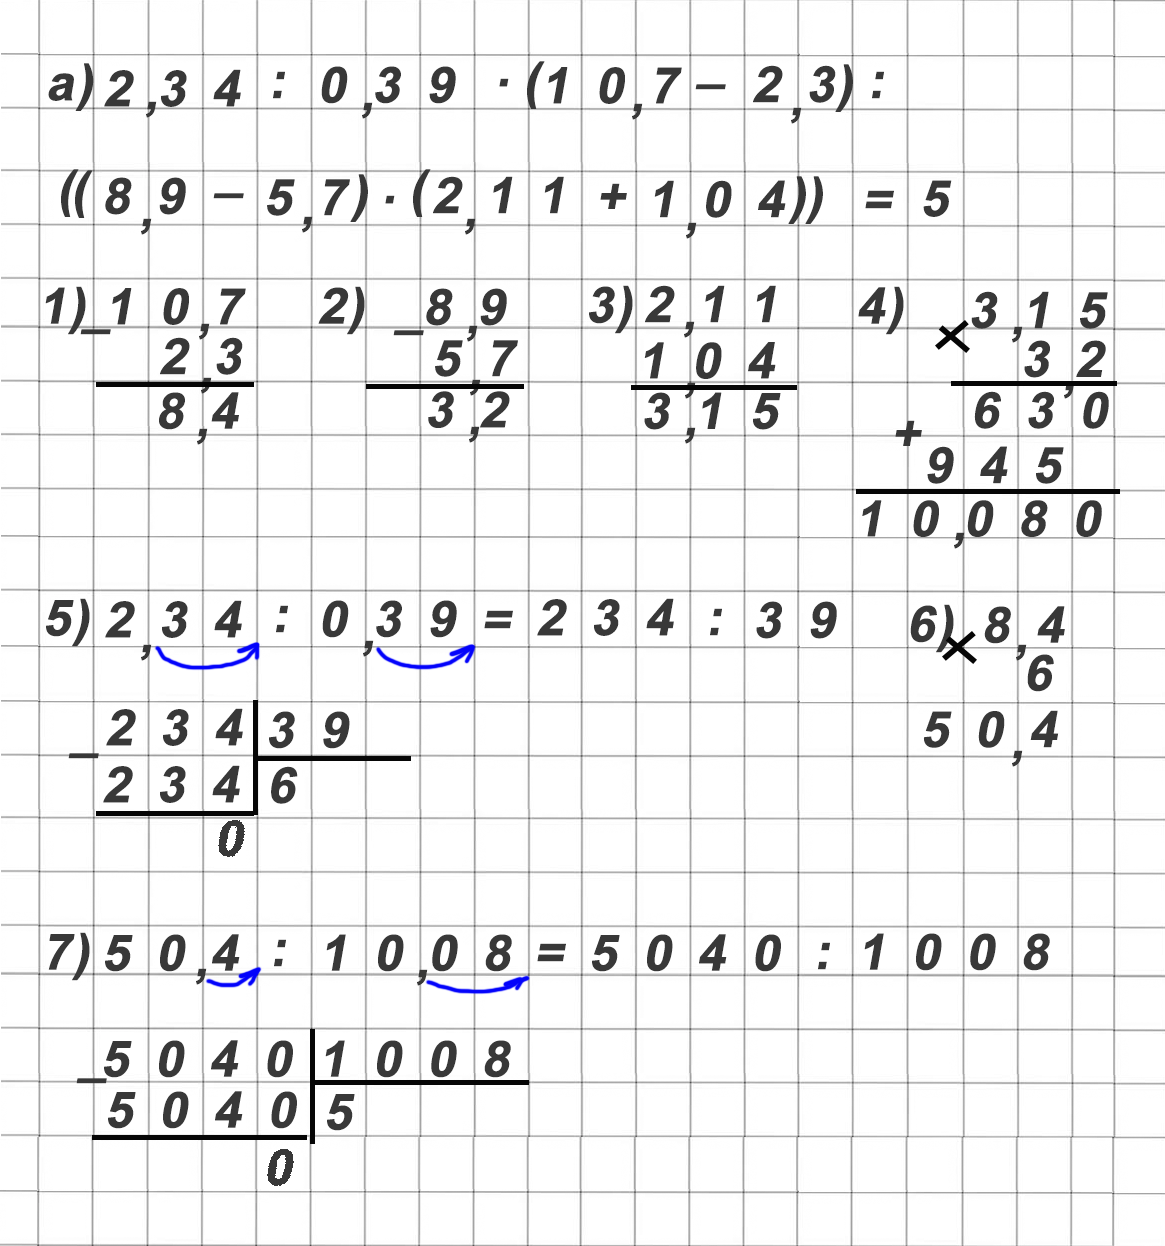 а) 2,34 : 0,39 · (10,7 – 2,3) :
((8,9 – 5,7) · (2,11 + 1,04)) = 5
1) –10,7
2,3
8,4
2) –8,9
5,7
3,2
3) 2,11
1,04
3,15
4) × 3,15
3,2
630
+
945
10,080
5) 2,34 : 0,39 = 234 : 39
– 234 39
234 6
0
6) × 8,4
6
50,4
7) 50,4 : 10,08 = 5040 : 1008
– 5040 1008
5040 5
0